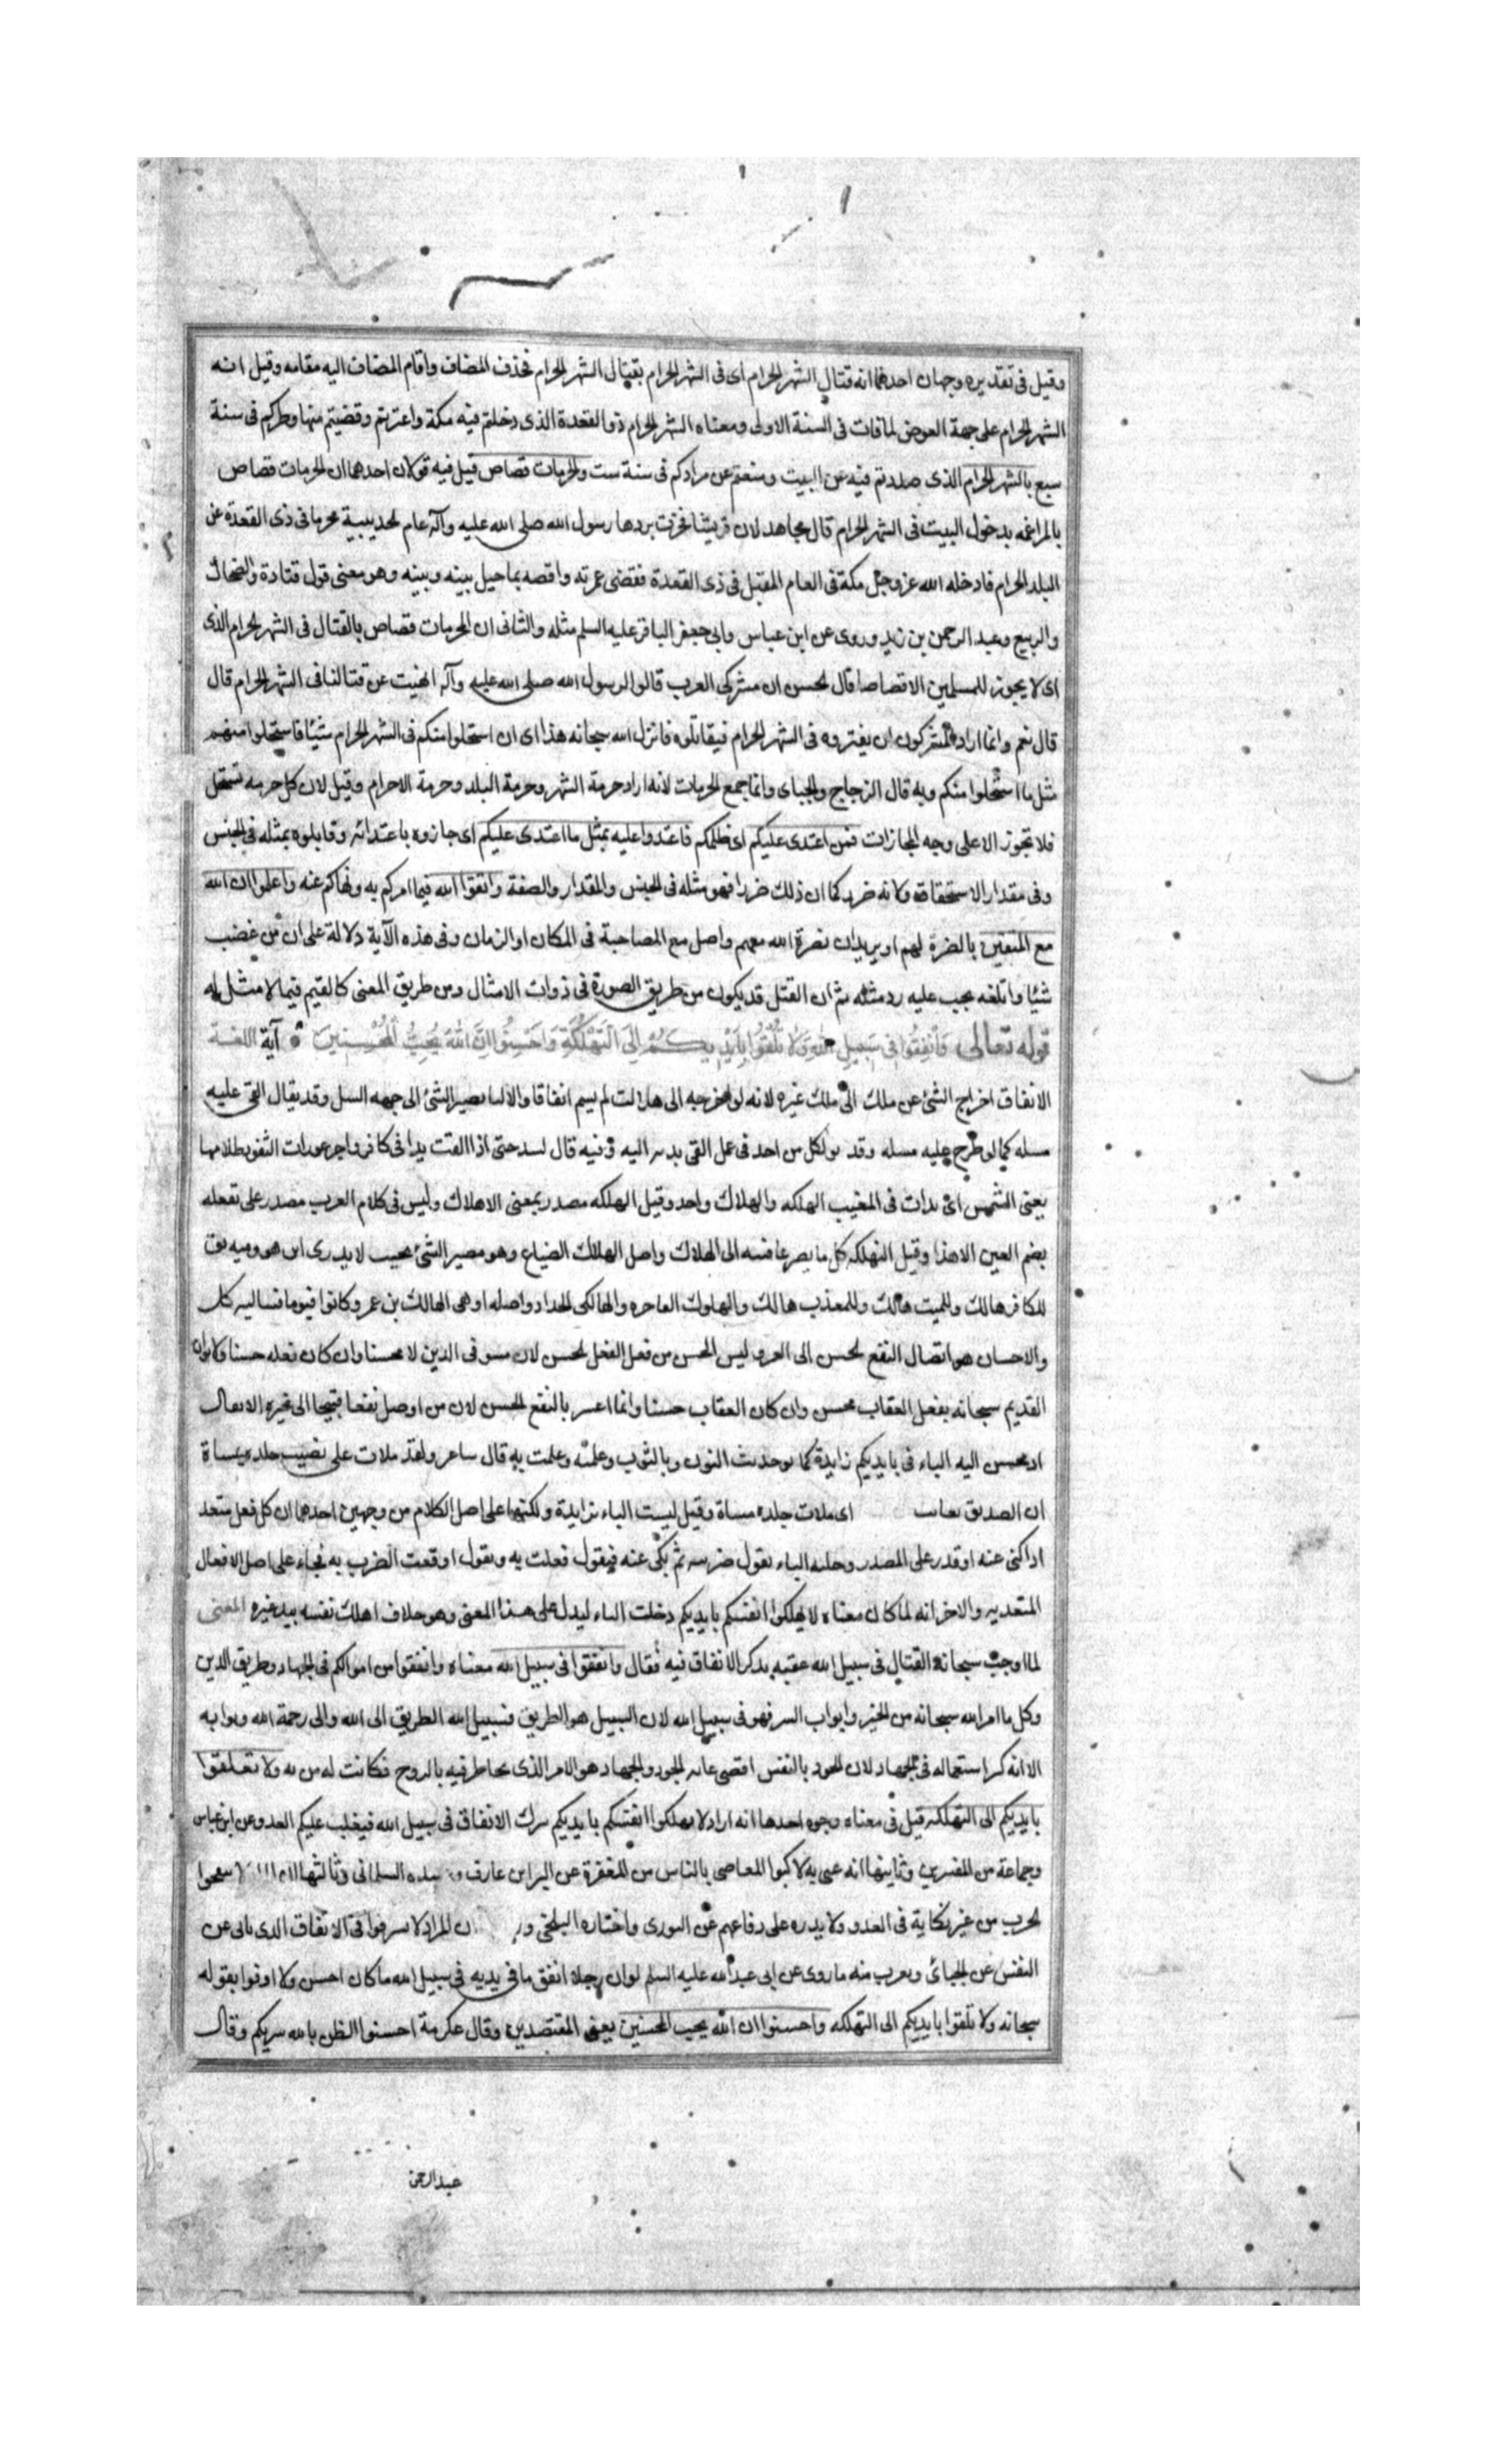 وقيل فى تقديره وجهان احدهما انه قتال الشهر الحرام اى فى الشهر الحرام بقتال الشهر الحرام فحذف المضاف واقام المضاف اليه مقامه وقيل انه
الشهر الحرام على جهة العوض لما فات فى السنة الاولى ومعناه الشهر الحرام ذو القعدة الذى دخلتم فيه مكة واعتمرتم وقضيتم منها وطركم فى سنة
سبع بالشهر الحرام الذى صددتم فيه عن البيت ومنعتم عن مرادكم فى سنة ست والحرمات قصاص قيل فيه قولان احدهما ان الحرمات قصاص
بالمراغمه بدخول البيت فى الشهر الحرام قال مجاهد لان قريشا فخرت بردها رسول الله صلى الله عليه وآله عام الحديبية محرما فى ذى القعدة عن
البلد الحرام فادخله الله عز وجل مكة فى العام المقبل فى ذى القعدة فقضى عمرته واقصه بما حيل بينه وبينه وهو معنى قول قتادة والضحاك
والربيع وعبد الرحمن بن زيد وروى عن ابن عباس وابى جعفر الباقر عليه السلم مثله والثانى ان الحرمات قصاص بالقتال فى الشهر الحرام الذى
اى لا يجوز للمسلمين الا قصاصا قال الحسن ان مشركى العرب قالوا لرسول الله صلى الله عليه وآله انهيت عن قتالنا فى الشهر الحرام قال
قال نعم وانما اراد المشركون ان يغتروه فى الشهر الحرام فيقاتلوه فانزل الله سبحانه هذا اى ان استحلوا منكم فى الشهر الحرام شيئا فاستحلوا منهم
مثل ما استحلوا منكم وبه قال الزجاج والجباى وانما جمع الحرمات لانه اراد حرمة الشهر وحرمة البلد وحرمة الاحرام وقيل لان كل حرمه تستحل
فلا تجوز الا على وجه المجازات فمن اعتدى عليكم اى ظلمكم فاعتدوا عليه بمثل ما اعتدى عليكم اى جازوه باعتدائه وقابلوه بمثله فى الجنس
وفى مقدار الاستحقاق ولانه ضرر كما ان ذلك ضرر فهو مثله فى الجنس والمقدار والصفة واتقوا الله فيما امركم به ونهاكم عنه واعلموا ان الله
مع المتقين بالنصرة لهم او يريد ان نصرة الله معهم واصل مع المصاحبة فى المكان او الزمان وفى هذه الآية دلالة على ان من غضب
شيئا واتلفه يجب عليه رد مثله ثم ان القتل قد يكون من طريق الصورة فى ذوات الامثال ومن طريق المعنى كالقيم فيما لا مثل له
قوله تعالى وَأَنْفِقُوا فِى سَبِيلِ اللهِ وَلَا تُلْقُوا بِأَيْدِيكُمْ إِلَى التَّهْلُكَةِ وَأَحْسِنُوا إِنَّ اللهَ يُحِبُّ الْمُحْسِنِينَ آية اللغة
الانفاق اخراج الشئ عن ملك الى ملك غيره لانه لو اخرجه الى هلاك لم يسم انفاقا والالقا تصيير الشئ الى جهه السفل وقد يقال القى عليه
مسله كما لو طرح عليه مسله وقد لكل من احد فى عمل القى بديه اليه وفيه قال لبيد حتى اذا القت يدا فى كافر واجن عورات الثغور ظلامها
يعنى الشمس اى بدات فى المغيب الهلكه والهلاك واحد وقيل الهلكه مصدر بمعنى الاهلاك وليس فى كلام العرب مصدر على تفعله
بضم العين الا هذا وقيل التهلكه كل ما يصير عاقبته الى الهلاك واصل الهلاك الضياع وهو مصير الشئ بحيث لا يدرى اين هو ومنه يق
للكافر هالك وللميت هالك وللمعذب هالك والهلوك الفاجره والهالكى الحداد واصله
والاحسان هو ايصال النفع الحسن الى الغير وليس المحسن من فعل الفعل الحسن لان لا محسنا وان كان فعله حسنا
القديم سبحانه بفعل العقاب محسن وان كان العقاب حسنا وانما اعتبر بالنفع الحسن لان من اوصل نفعا قبيحا الى غيره لا يقال
انه محسن اليه الباء فى بايديكم زايدة كما يو حديث الثوب وبالثوب وعلمته وعلمت به قال شاعر ولقد ملات على نصيب جلده بمساة
ان الصديق يعاتب اى ملات جلده مساة وقيل ليست الباء بزايدة ولكنها على اصل الكلام من وجهين احدهما ان كل فعل متعد
اذا كنى عنه او قدر على المصدر دخله الباء تقول ضربته ثم يكنى عنه فيقول فعلت به وتقول اوقعت الضرب به فجاء على اصل الافعال
المتعديه والاخر انه لما كان معناه لا تهلكوا انفسكم بايديكم دخلت الباء ليدل على هذا المعنى وهو خلاف اهلك نفسه بيد غيره المعنى
لما اوجب سبحانه القتال فى سبيل الله عقبه بذكر الانفاق فيه فقال وانفقوا فى سبيل الله معناه وانفقوا من اموالكم فى الجهاد وطريق الدين
وكل ما امر الله سبحانه من الخير وابواب البر فهو فى سبيل الله لان السبيل هو الطريق فسبيل الله الطريق الى الله والى رحمة الله وثوابه
الا انه كثر استعماله فى الجهاد لان الجود بالنفس اقصى غايه الجود والجهاد هو الامر الذى يخاطر فيه بالروح فكانت له مزيه ولا تلقوا
بايديكم الى التهلكه قيل فى معناه وجوه احدها انه اراد لا تهلكوا انفسكم بايديكم بترك الانفاق فى سبيل الله فيغلب عليكم العدو عن ابن عباس
وجماعة من المفسرين وثانيها انه عنى به لا تركبوا المعاصى بالياس من المغفرة عن البراء بن عازب وعبيده السلمانى وثالثها
الحرب من غير نكاية فى العدو ولا يدره على دفاعهم عن الثورى واختاره البلخى ان المراد لا تسرفوا فى الانفاق الذى ياتى عن
النفس عن الجبائى ويقرب منه ما روى عن ابى عبد الله عليه السلم لو ان رجلا انفق ما فى يديه فى سبيل الله ما كان احسن ولا اوفوا بقوله
سبحانه ولا تلقوا بايديكم الى التهلكه واحسنوا ان الله يحب المحسنين يعنى المقتصدين وقال عكرمة احسنوا الظن بالله يبركم وقال
عبد الرحمن